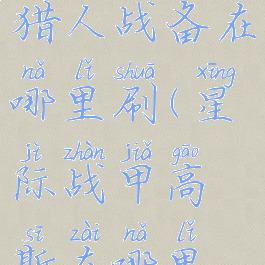 猎人战备在
nǎ lǐ shuā xīng
哪里刷(星
jì zhàn jiǎ gāo
际战甲高
sī zài nǎ lǐ
斯在哪里